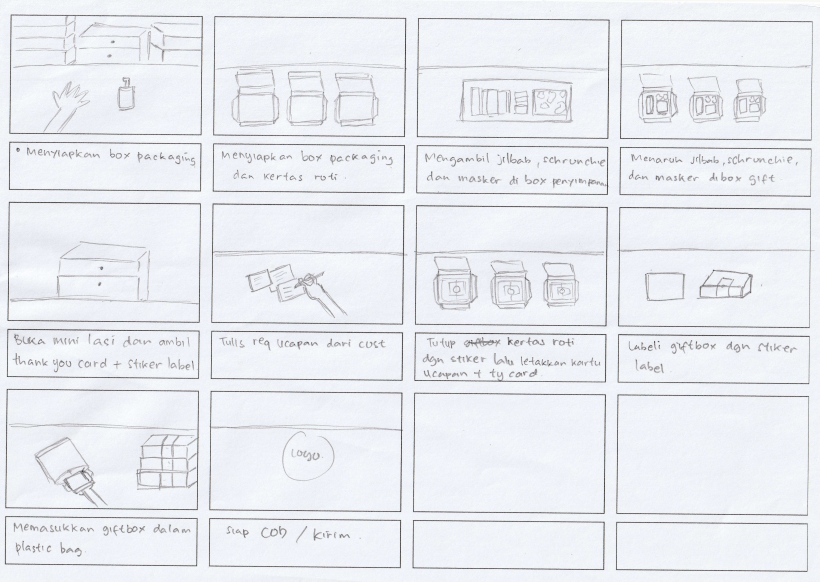 • Menyiapkan box packaging
Menyiapkan box packaging
dan kertas roti.
Mengambil jilbab, schrunchie
dan masker di box penyimpanan
Menaruh jilbab, schrunchie,
dan masker dibox gift
Buka mini laci dan ambil
thank you card + stiker label
Tulis req ucapan dari cust
Tutup giftbox kertas roti
dgn stiker lalu letakkan kartu
ucapan + ty card
Labeli giftbox dgn stiker
label
LOGO
Memasukkan giftbox dalam
plastic bag
Siap COD / Kirim.